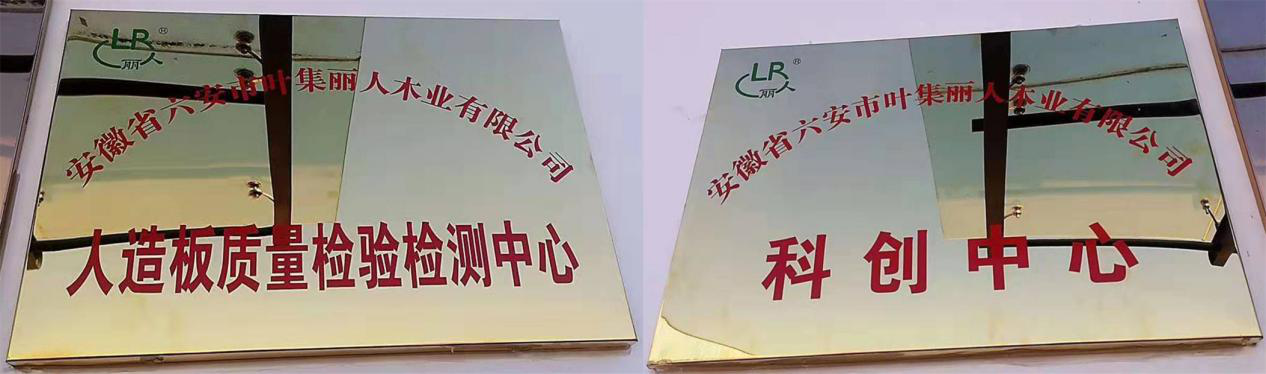 LR®
丽人
安徽省六安市叶集丽人木业有限公司
人造板质量检验检测中心
LR®
丽人
安徽省六安市叶集丽人木业有限公司
科创中心